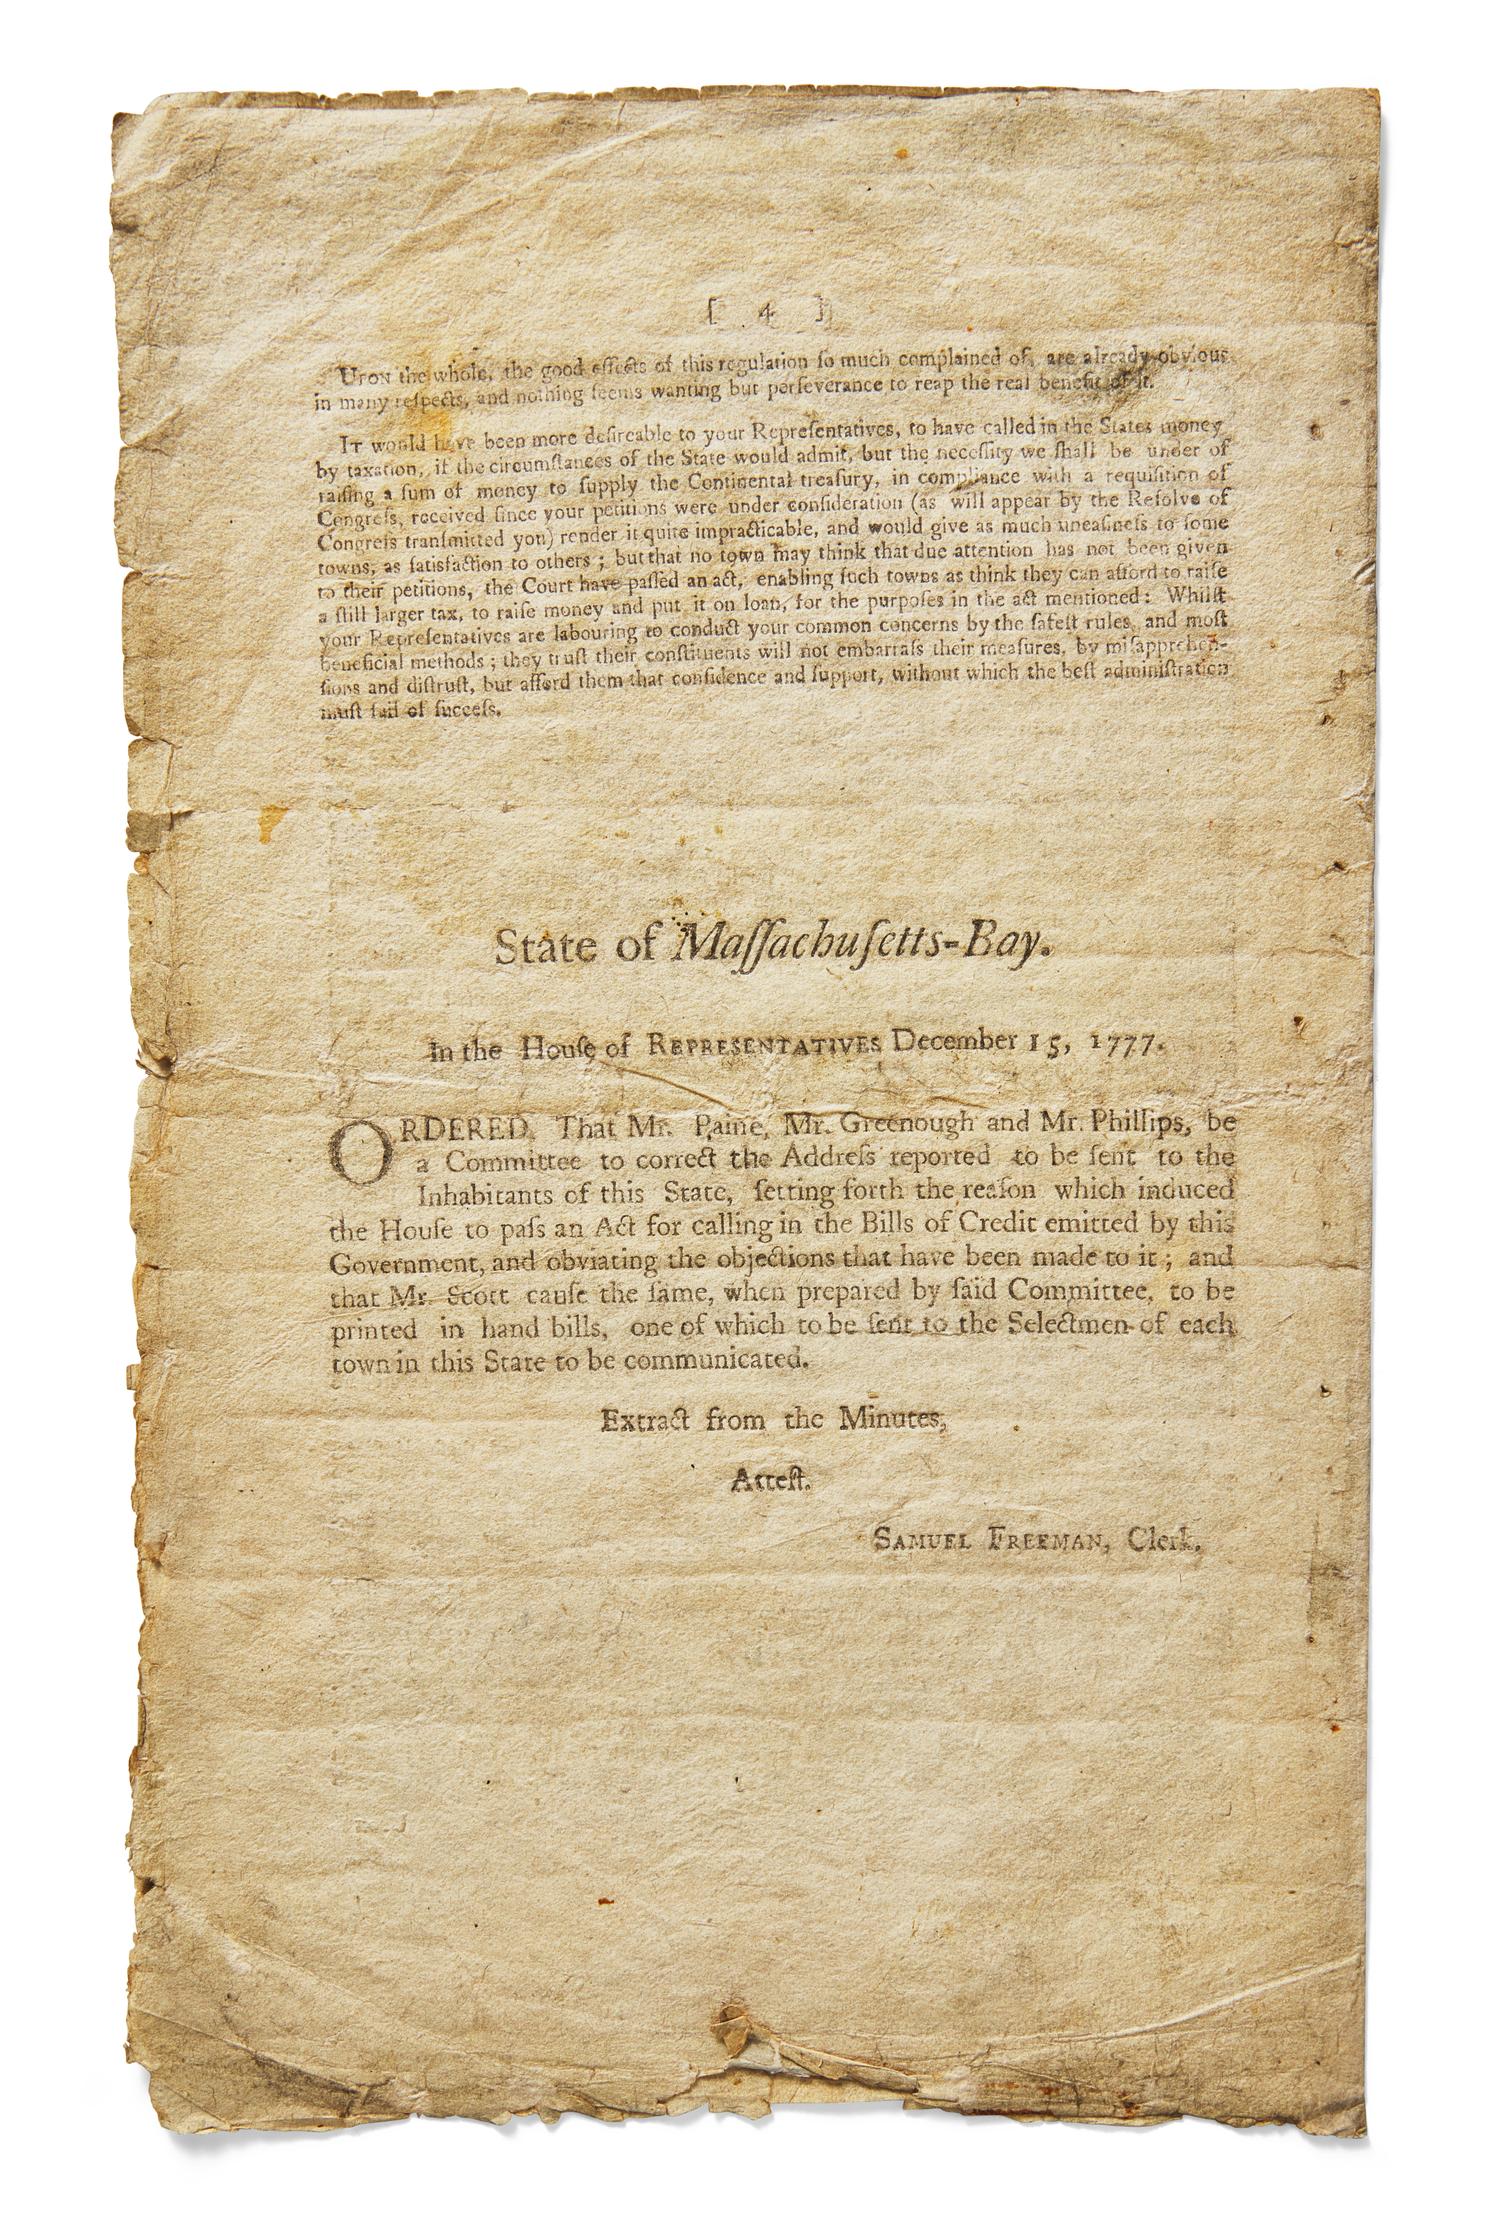 [ 4 ]
Upon the whole, the good effects of this regulation ſo much complained of, are already obvious
in many reſpects, and nothing ſeems wanting but perſeverance to reap the real benefit of it.
It would have been more deſireable to your Repreſentatives, to have called in the States money
by taxation, if the circumſtances of the State would admit, but the neceſſity we ſhall be under of
raiſing a ſum of money to ſupply the Continental treaſury, in compliance with a requiſition of
Congreſs, received ſince your petitions were under conſideration (as will appear by the Reſolve of
Congreſs tranſmitted you) render it quite impracticable, and would give as much uneaſineſs to ſome
towns, as ſatisfaction to others ; but that no town may think that due attention has not been given
to their petitions, the Court have paſſed an act, enabling ſuch towns as think they can afford to raiſe
a ſtill larger tax, to raiſe money and put it on loan, for the purpoſes in the act mentioned : Whilſt
your Repreſentatives are labouring to conduct your common concerns by the ſafeſt rules, and moſt
beneficial methods ; they truſt their conſtituents will not embarraſs their meaſures, by miſapprehen-
ſions and diſtruſt, but afford them that confidence and ſupport, without which the beſt adminiſtration
muſt fail of ſucceſs.
State of Maſſachuſetts-Bay.
In the Houſe of REPRESENTATIVES December 15, 1777.
ORDERED, That Mr. Paine, Mr. Greenough and Mr. Phillips, be
a Committee to correct the Addreſs reported to be ſent to the
Inhabitants of this State, ſetting forth the reaſon which induced
the Houſe to paſs an Act for calling in the Bills of Credit emitted by this
Government, and obviating the objections that have been made to it ; and
that Mr. Scott cauſe the ſame, when prepared by ſaid Committee, to be
printed in hand bills, one of which to be ſent to the Selectmen of each
town in this State to be communicated.
Extract from the Minutes,
Atteſt.
SAMUEL FREEMAN, Clerk.